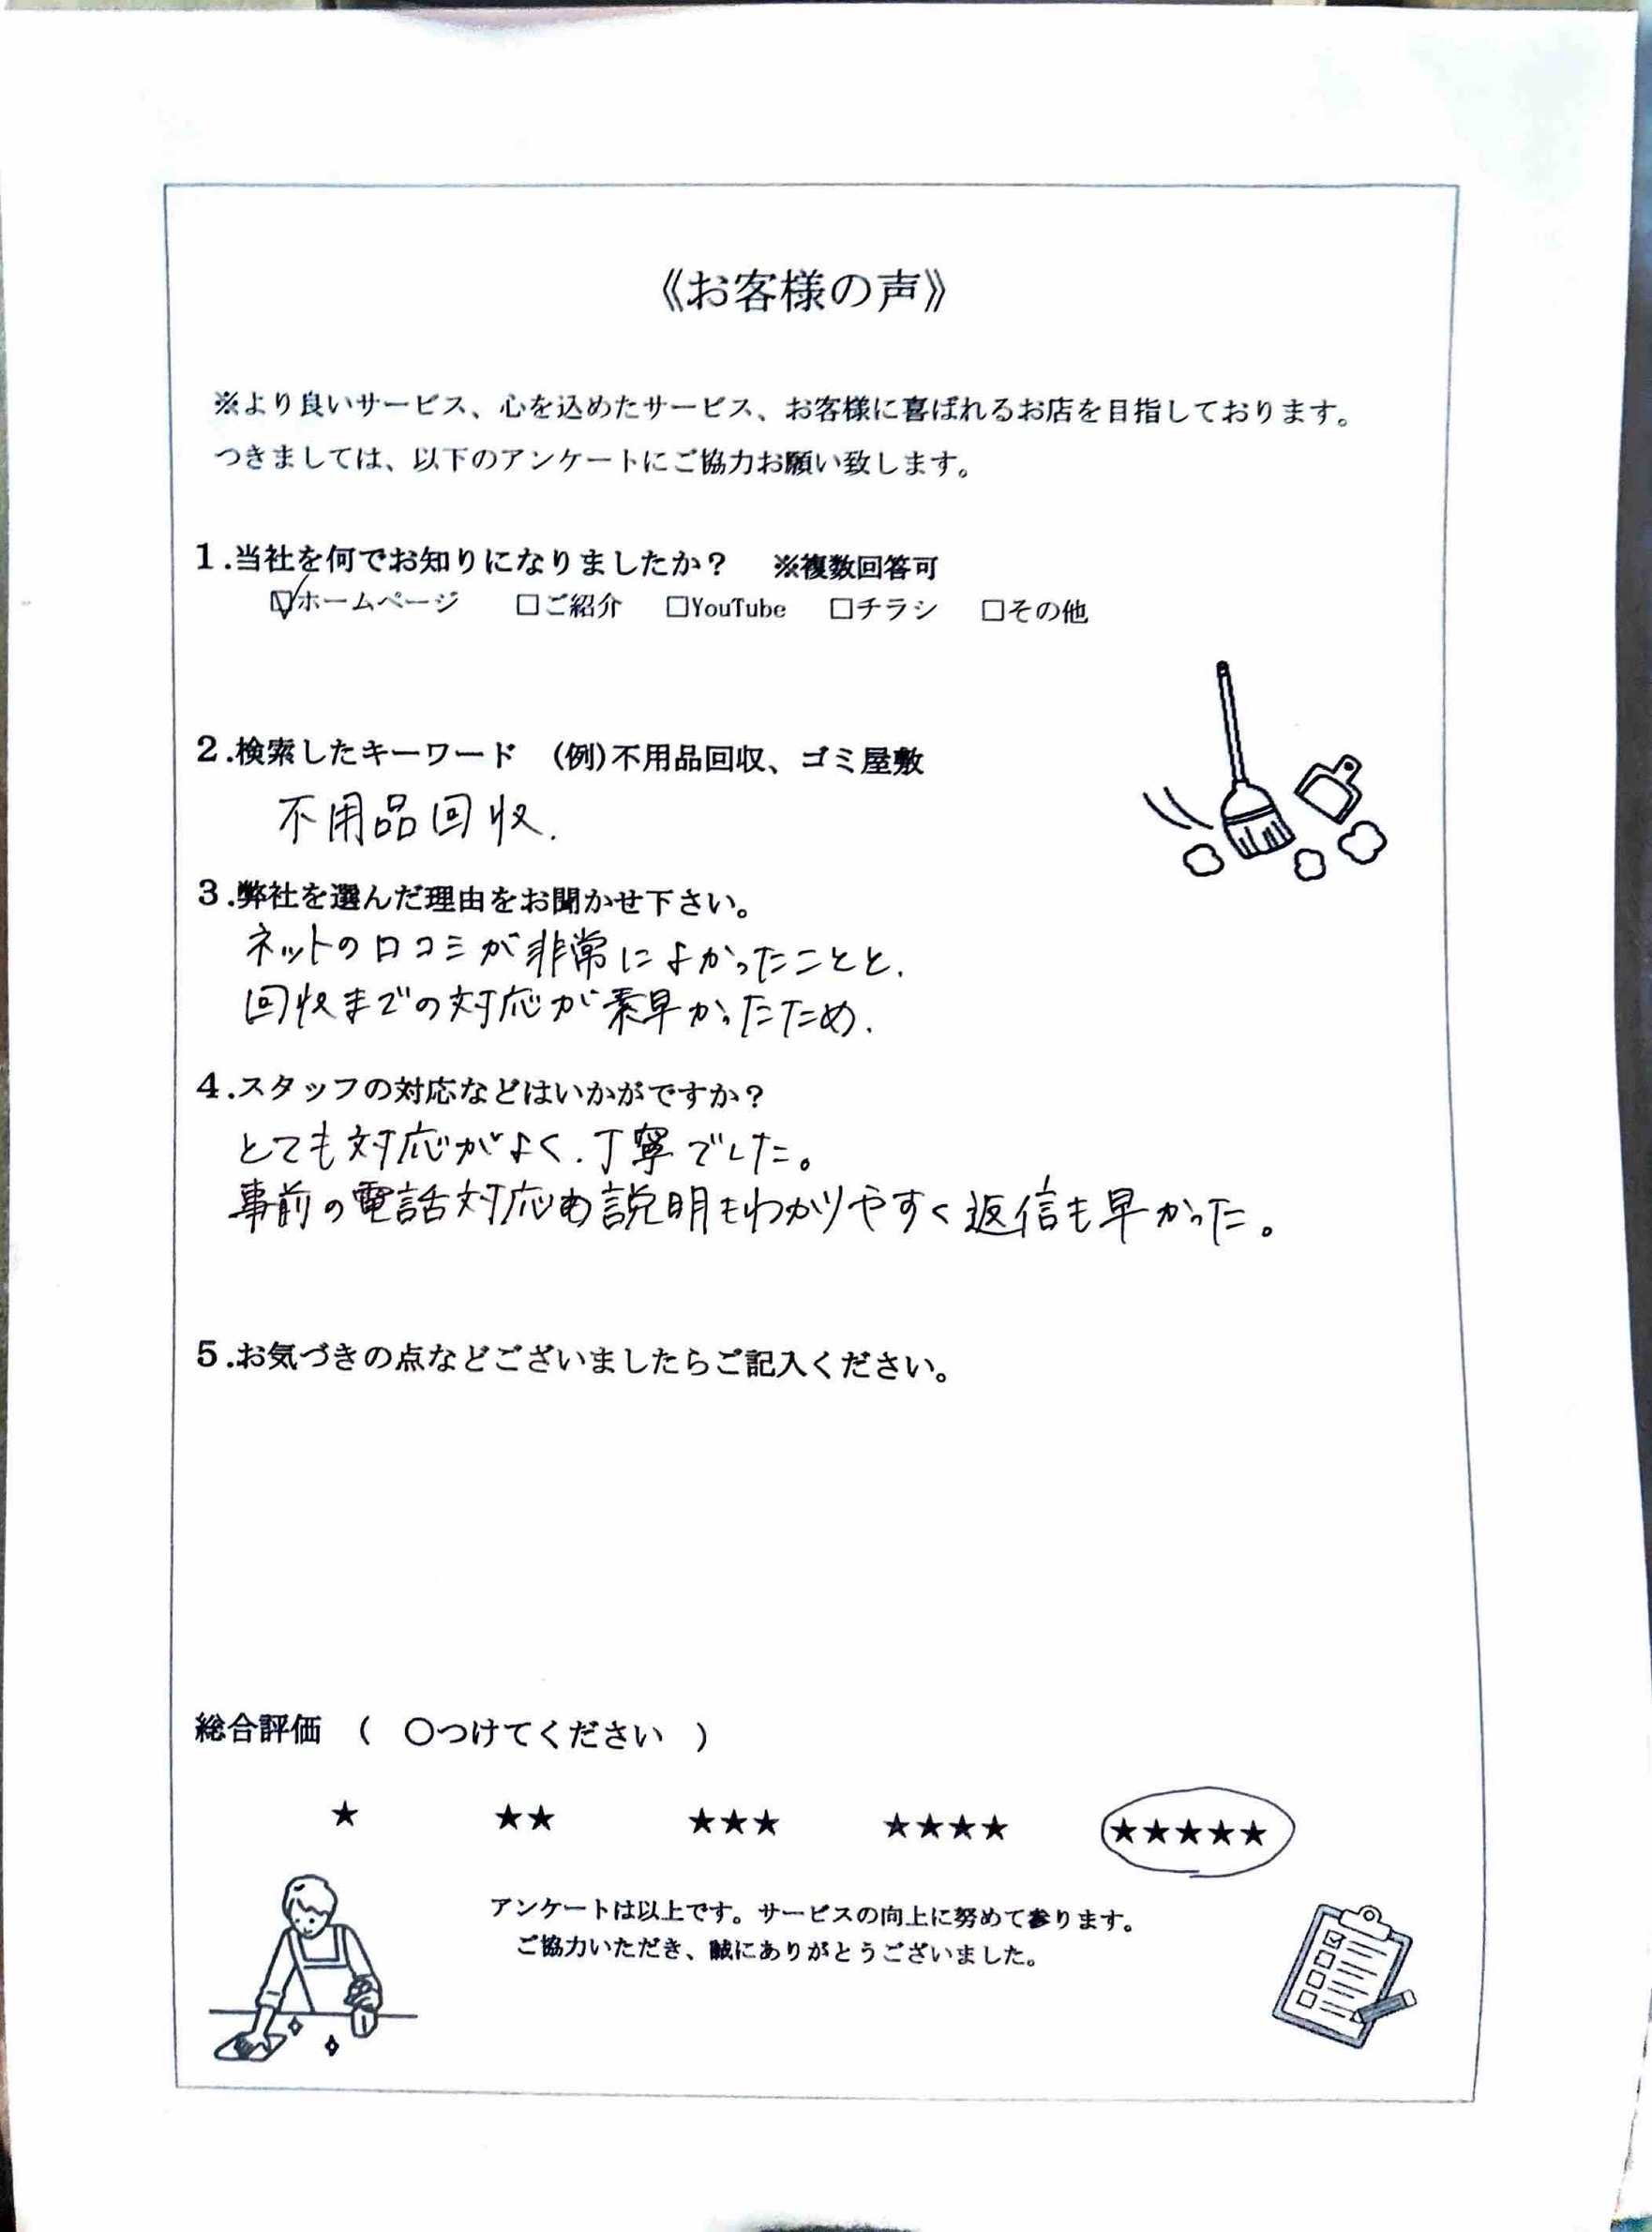 《お客様の声》
※より良いサービス、心を込めたサービス、お客様に喜ばれるお店を目指しております。
つきましては、以下のアンケートにご協力お願い致します。
1.当社を何でお知りになりましたか？　※複数回答可
☑ホームページ　□ご紹介　□YouTube　□チラシ　□その他
2.検索したキーワード　(例)不用品回収、ゴミ屋敷
不用品回収.
3.弊社を選んだ理由をお聞かせ下さい。
ネットの口コミが非常によかったことと、
回収までの対応が素早かったため.
4.スタッフの対応などはいかがですか？
とても対応がよく、丁寧でした。
事前の電話対応も説明もわかりやすく返信も早かった。
5.お気づきの点などございましたらご記入ください。
総合評価　（　○つけてください　）
★　★★　★★★　★★★★　★★★★★
アンケートは以上です。サービスの向上に努めて参ります。
ご協力いただき、誠にありがとうございました。